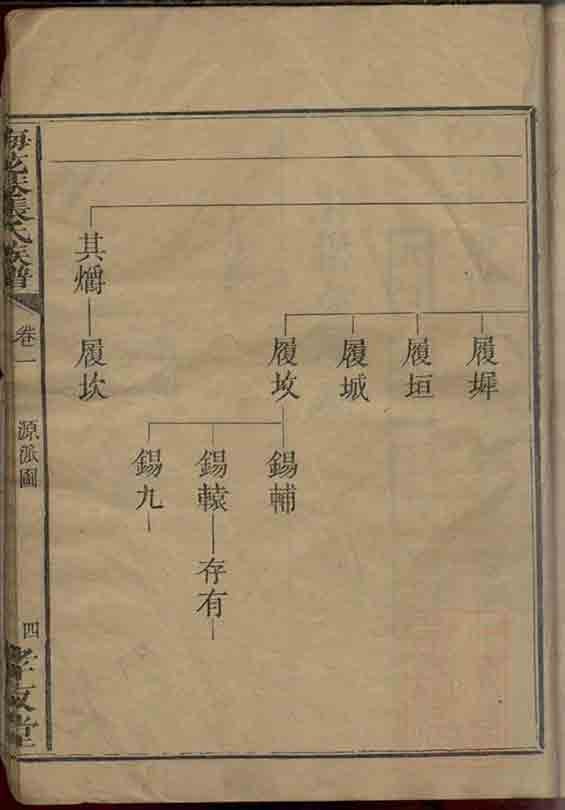 履墀
履垣
履城
履坆
錫輔
錫轅
存有
錫九
其爝
履坎
張氏族譜
卷一
源派圖
四
孝友堂